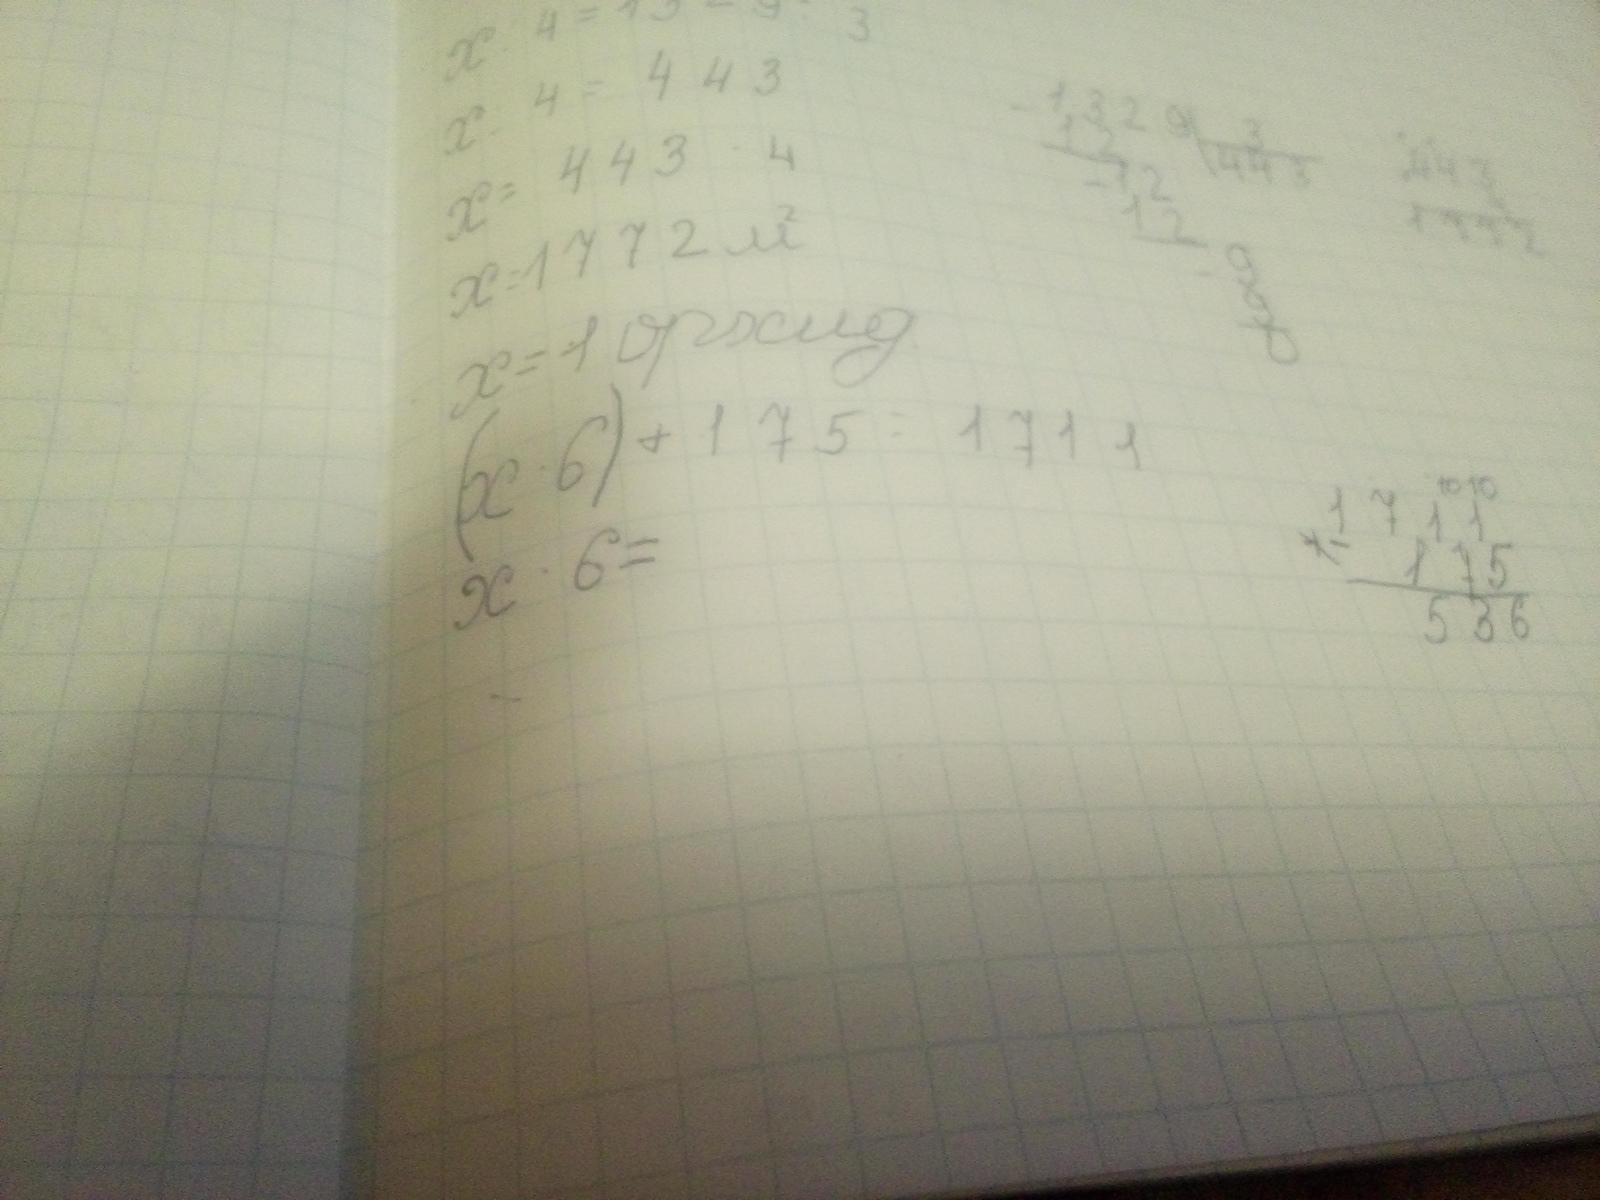 x : 4 = 1329 : 3
x : 4 = 443
x = 443 · 4
x = 1772 м²
x = 1 орхид
(x · 6) + 175 = 1711
x · 6 =
- 1329 3
12 443
- 12
12
- 9
9
0
443
4
1772
10 10
1711
- 175
536